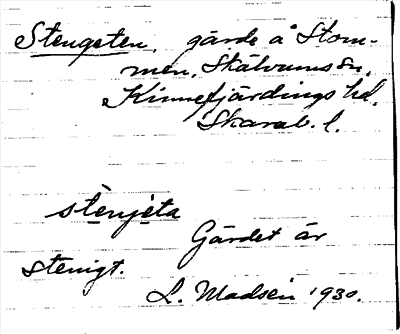 Stengeten, gärde å Stom-
men, Skälvums sn,
Kinnefjärdings hd,
Skarab. l.
stenjeta
Gärdet är
stenigt.
L. Madsén 1930.